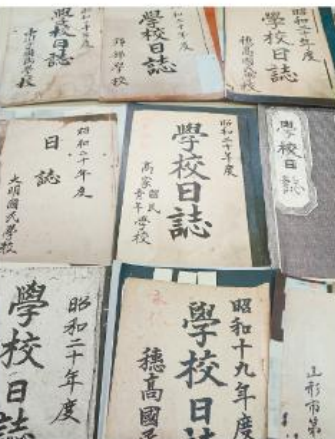 學校日誌
昭和二十年度
學校日誌
昭和二十年度
學校日誌
穂高國民學校
昭和二十年度
日誌
大明國民學校
昭和二十年度
學校日誌
高家國民
青年學校
學校日誌
昭和二十年度
學校日誌
昭和十九年度
學校日
穂高國民
山形市第